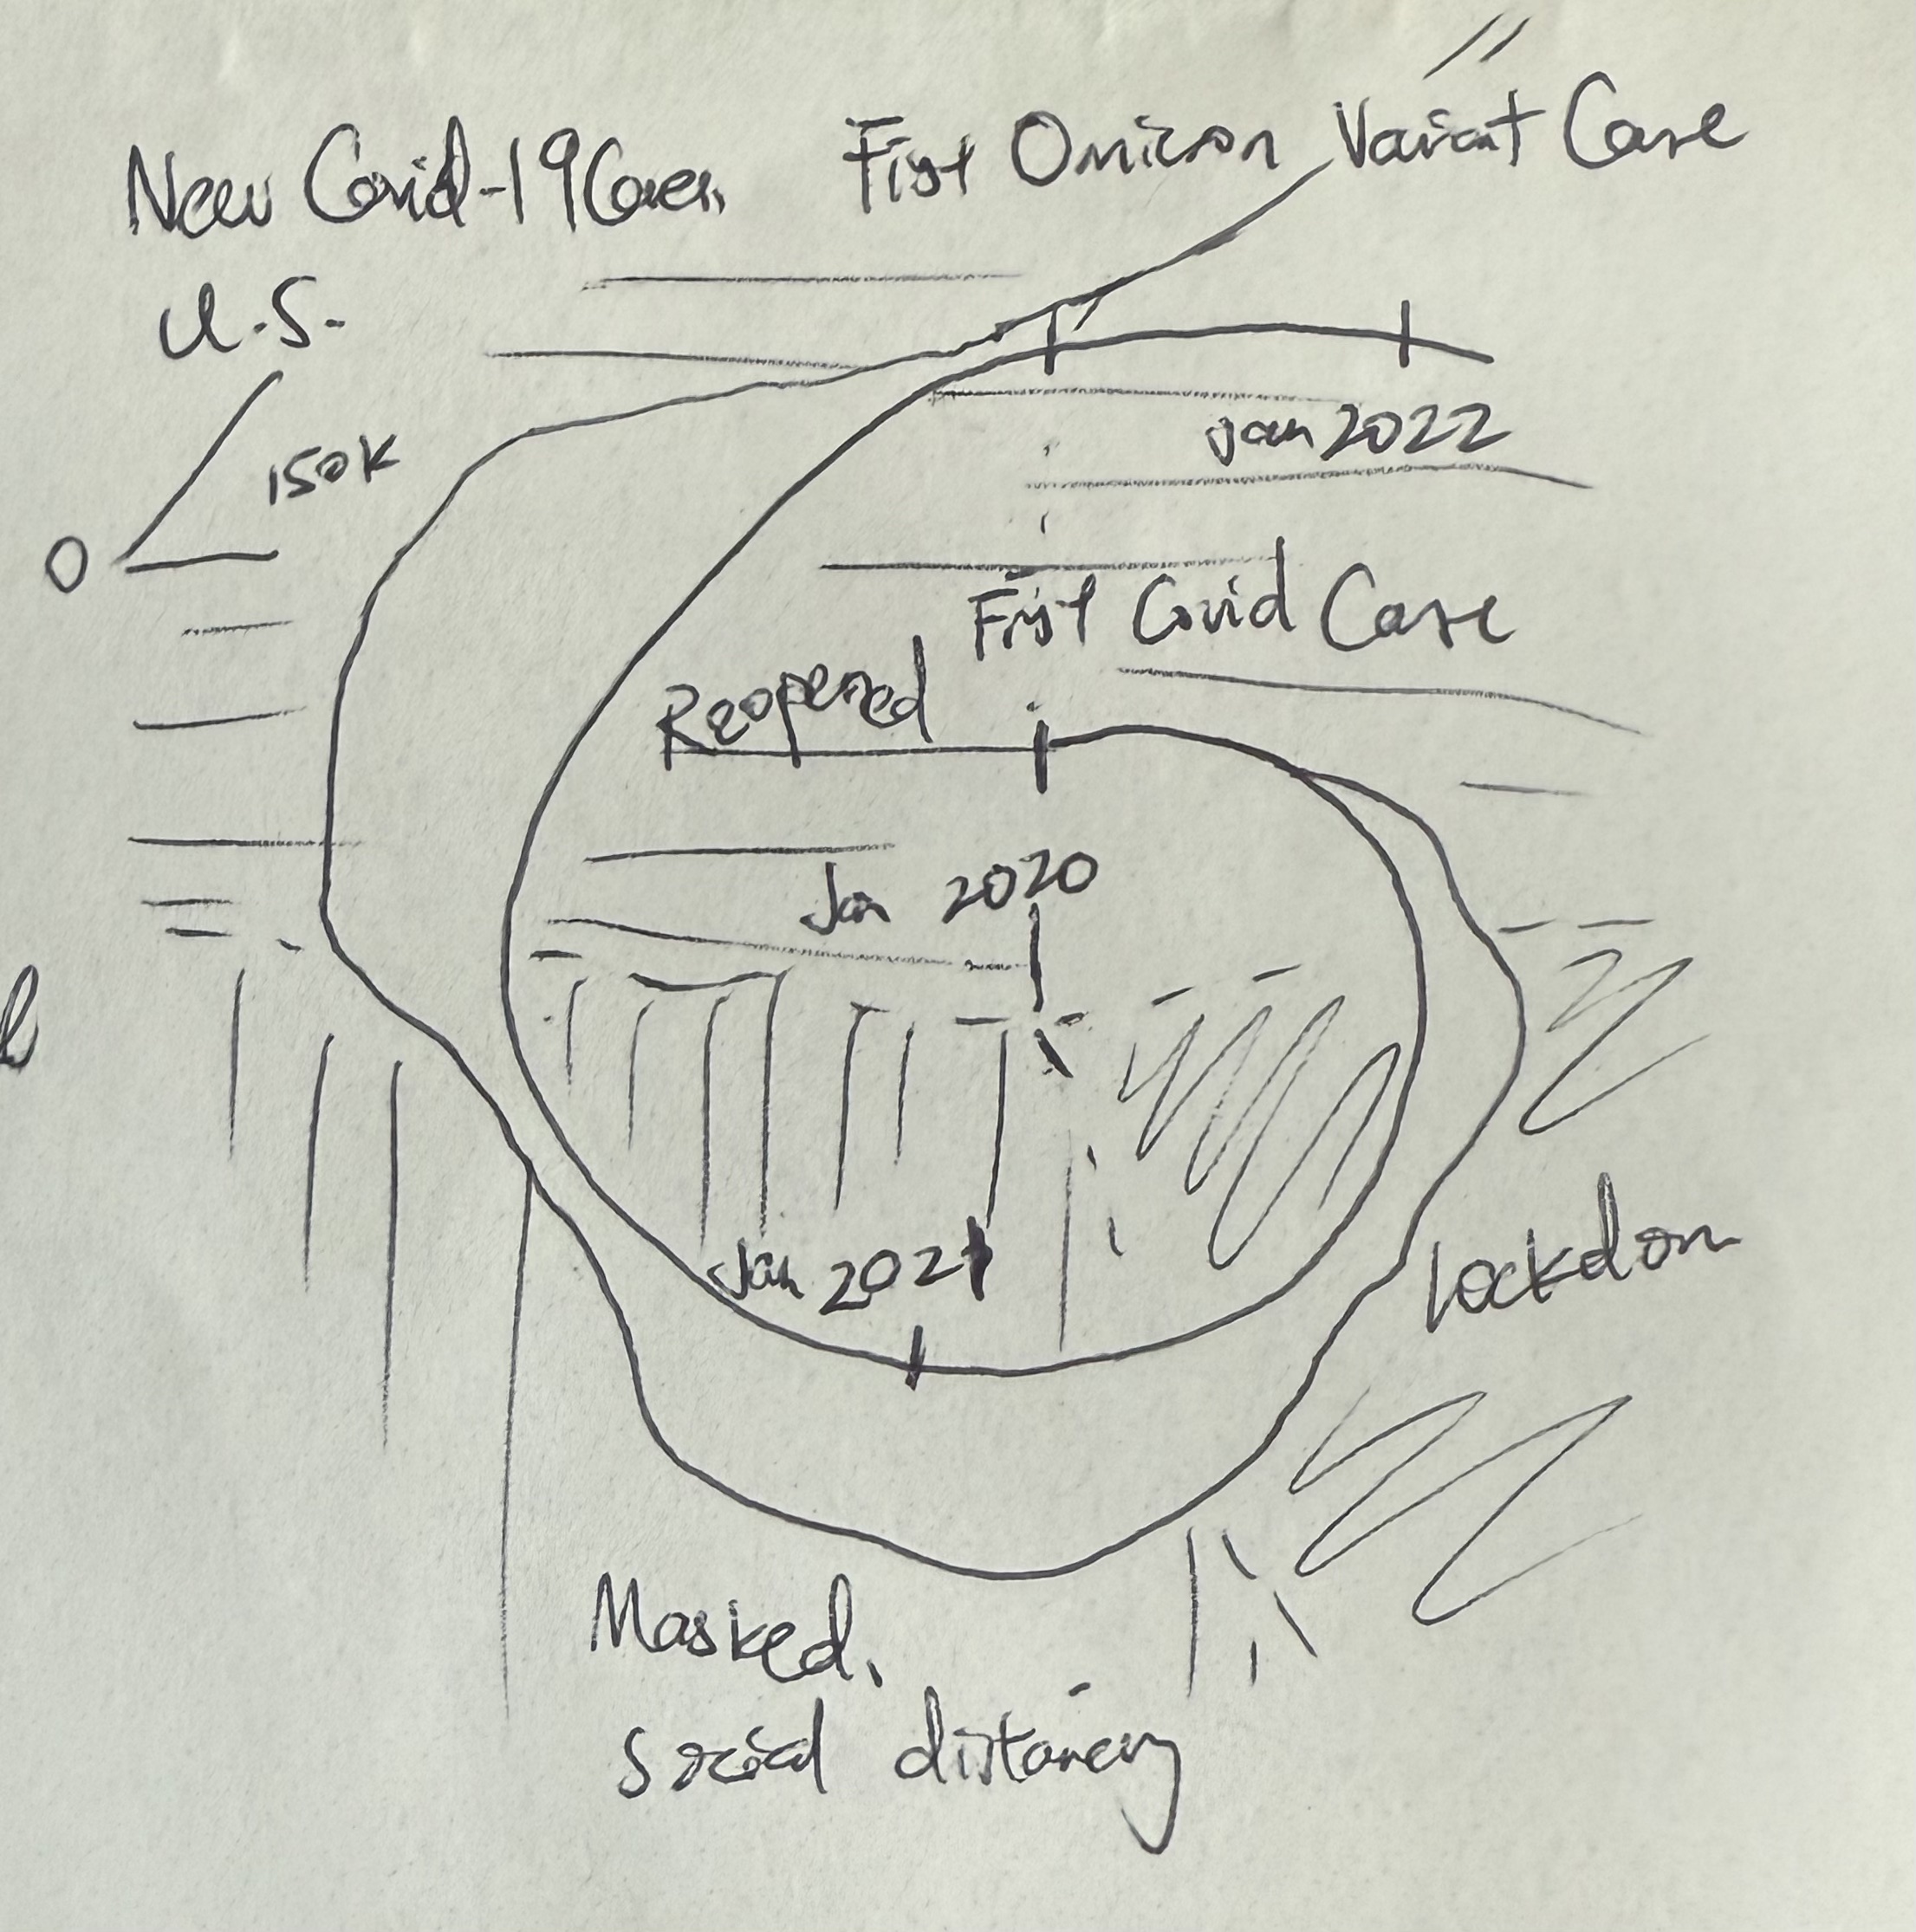 New Covid-19 Cases,
U.S.
First Omicron Variant Case
150K
0
Jan 2022
First Covid Case
Reopened
Jan 2020
Jan 2021
Lockdown
Masked,
social distancing